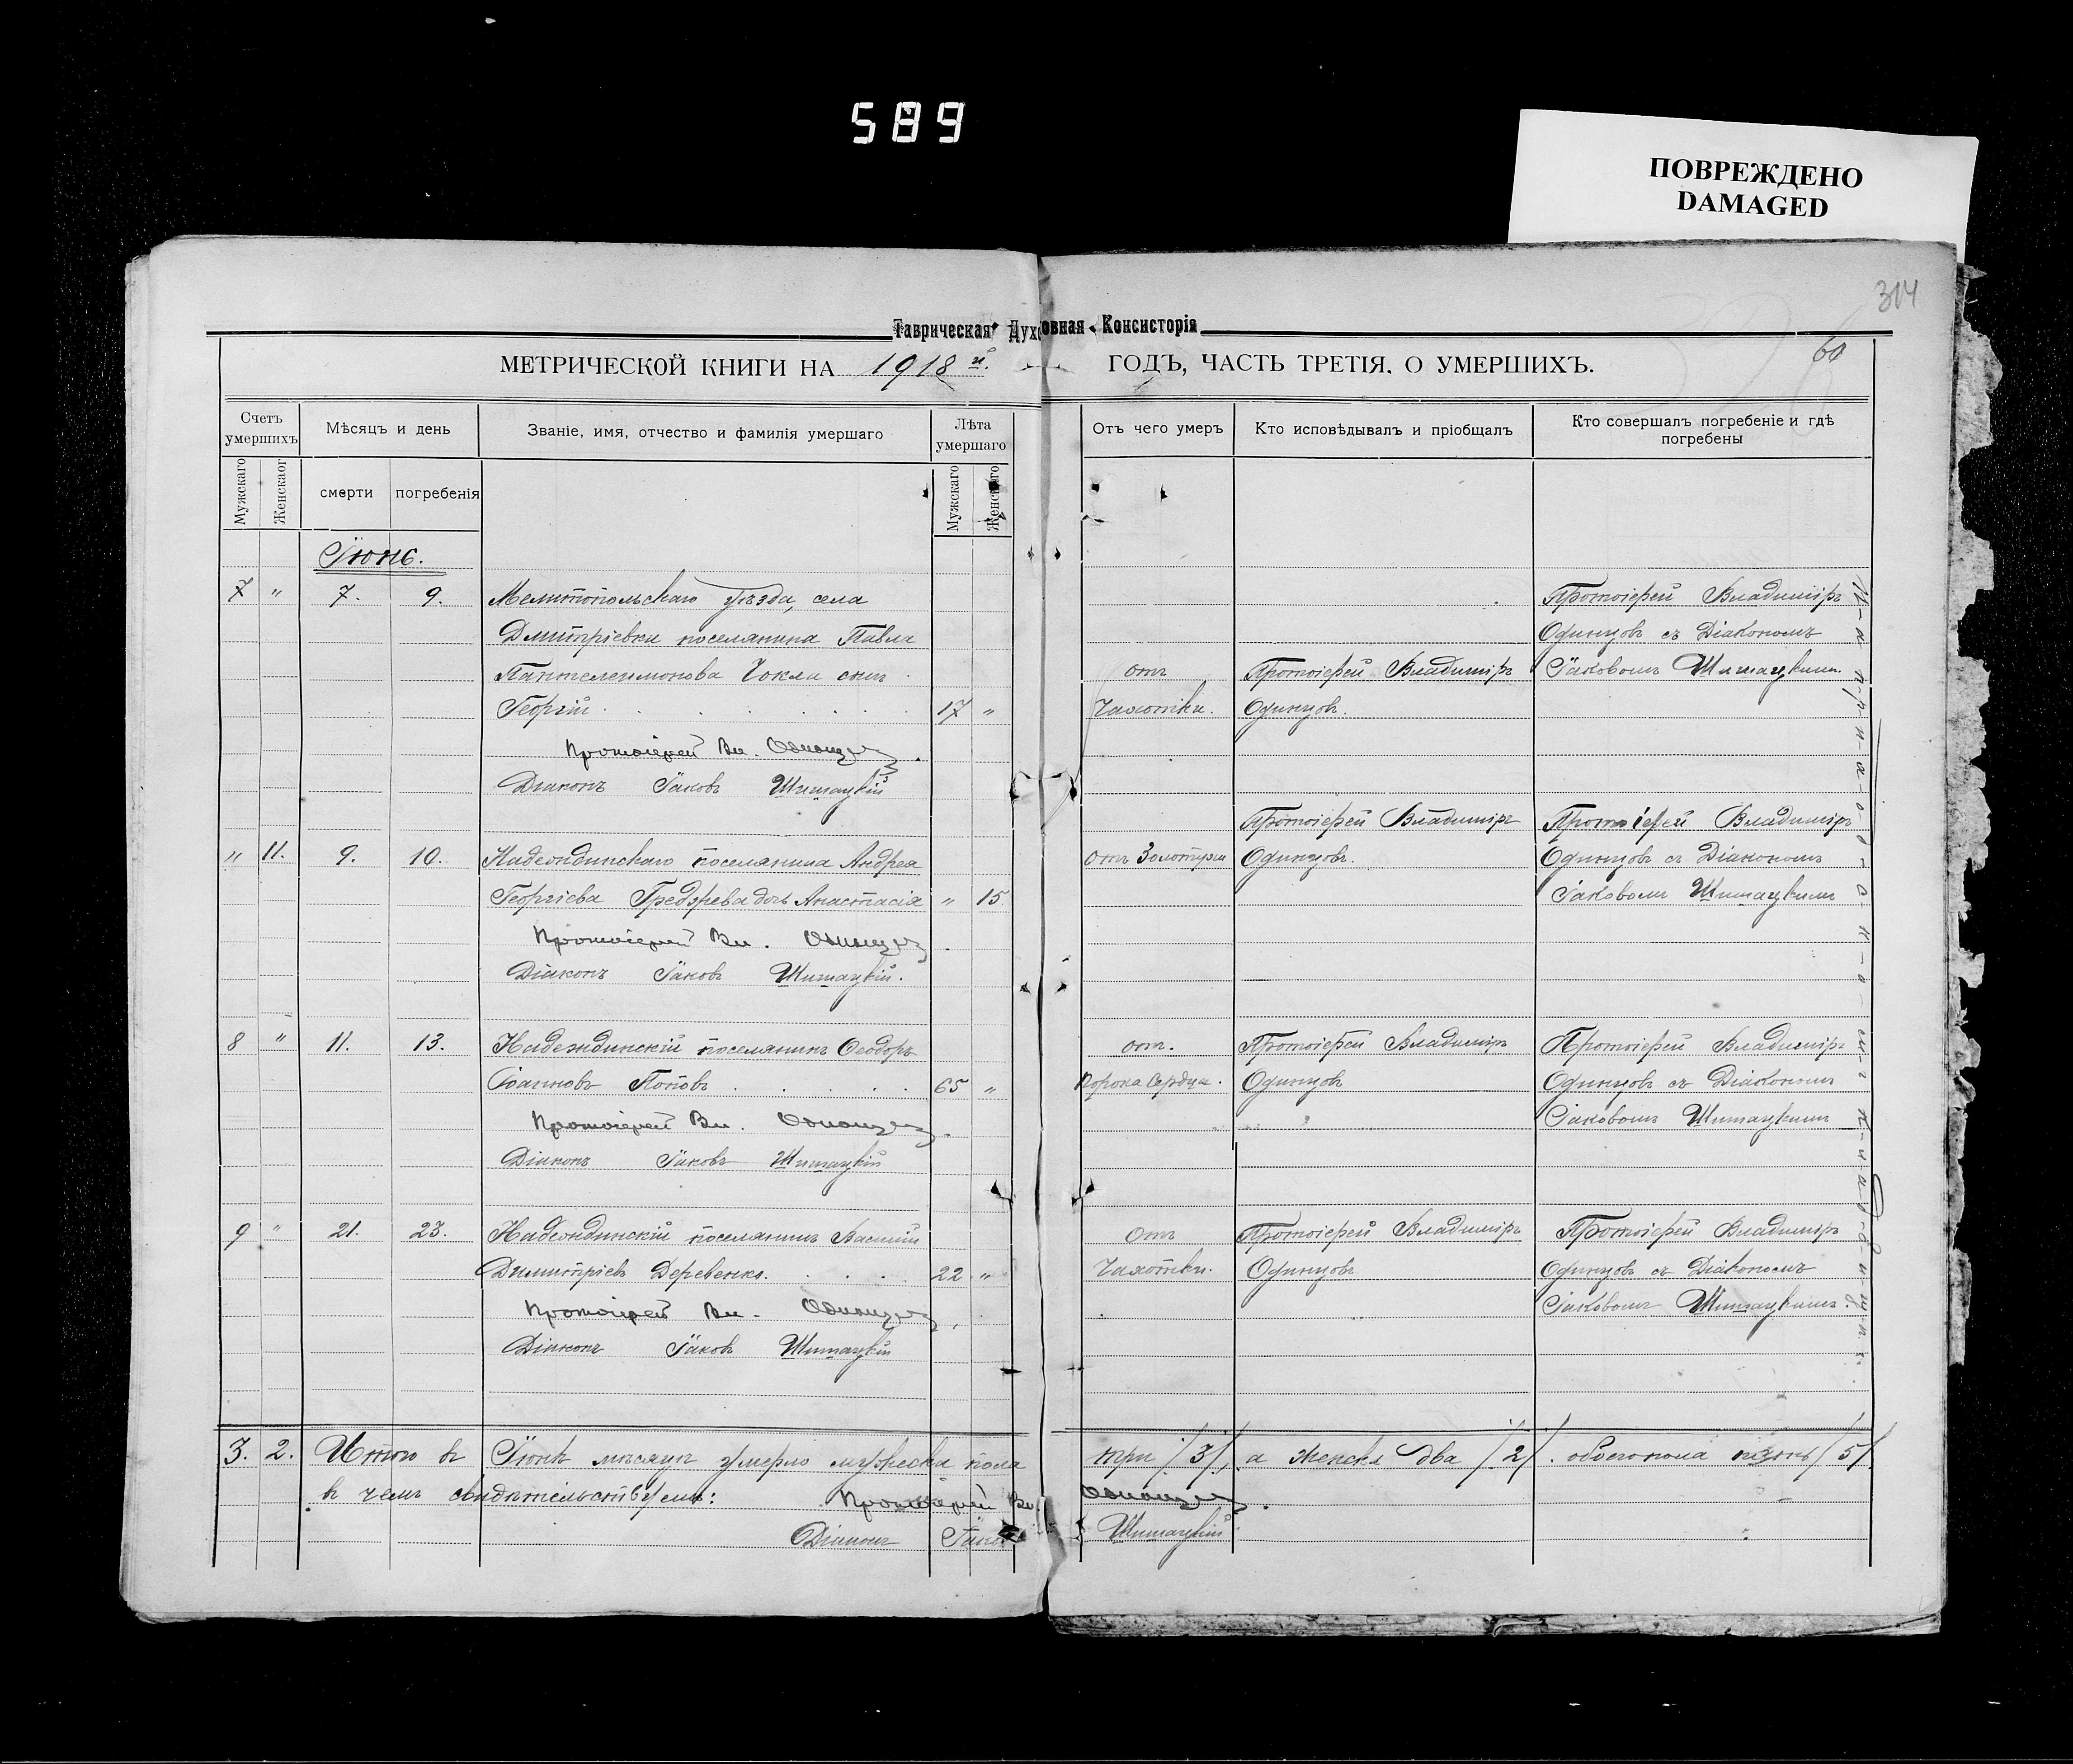 589
ПОВРЕЖДЕНО
DAMAGED
314
60
Таврическая Духовная Консисторія
МЕТРИЧЕСКОЙ КНИГИ НА 1918 й. ГОДЪ, ЧАСТЬ ТРЕТІЯ. О УМЕРШИХЪ.
Счетъ умершихъ
Мѣсяцъ и день
Званіе, имя, отчество и фамилія умершаго
Лѣта умершаго
Отъ чего умеръ
Кто исповѣдывалъ и пріобщалъ
Кто совершалъ погребеніе и гдѣ погребены
Мужскаго
Женскаог
смерти
погребенія
Мужскаго
Женскаго
Іюнь.
7 " 7. 9. Мелитопольскаго уѣзда, села
Дмитріевки поселянина Павла
Пантелеимонова сынъ
Георгій 17 "
Протоіерей Вл. Одинцовъ.
Діаконъ Іаковъ Шишацкій
отъ
Чахотки.
Протоіерей Владиміръ
Одинцовъ.
Протоіерей Владиміръ
Одинцовъ съ Діакономъ
Іаковомъ Шишацкимъ.
" 11. 9. 10. поселянина Андрея
Георгіева дочь Анастасія " 15
Протоіерей Вл. Одинцовъ.
Діаконъ Іаковъ Шишацкій.
отъ Золотухи
Протоіерей Владиміръ
Одинцовъ.
Протоіерей Владиміръ
Одинцовъ съ Діакономъ
Іаковомъ Шишацкимъ
8 " 11. 13. Надеждинскій поселянинъ Ѳеодоръ
Іоанновъ Поповъ 65 "
Протоіерей Вл. Одинцовъ.
Діаконъ Іаковъ Шишацкій
отъ.
Порока Сердца.
Протоіерей Владиміръ
Одинцовъ
Протоіерей Владиміръ
Одинцовъ съ Діакономъ
Іаковомъ Шишацкимъ
9 " 21. 23. Надеждинскій поселянинъ Василій
Димитріевъ Деревенко. 22 "
Протоіерей Вл. Одинцовъ.
Діаконъ Іаковъ Шишацкій
Отъ
Чахотки.
Протоіерей Владиміръ
Одинцовъ
Протоіерей Владиміръ
Одинцовъ съ Діакономъ
Іаковомъ Шишацкимъ.
3. 2. Итого въ Іюнѣ мѣсяцѣ умерло мужеска пола три /3/, а женска два /2/. обоего пола пять /5/.
въ чемъ свидѣтельствуемъ: Протоіерей Вл. Одинцовъ.
Діаконъ Іаковъ Шишацкій